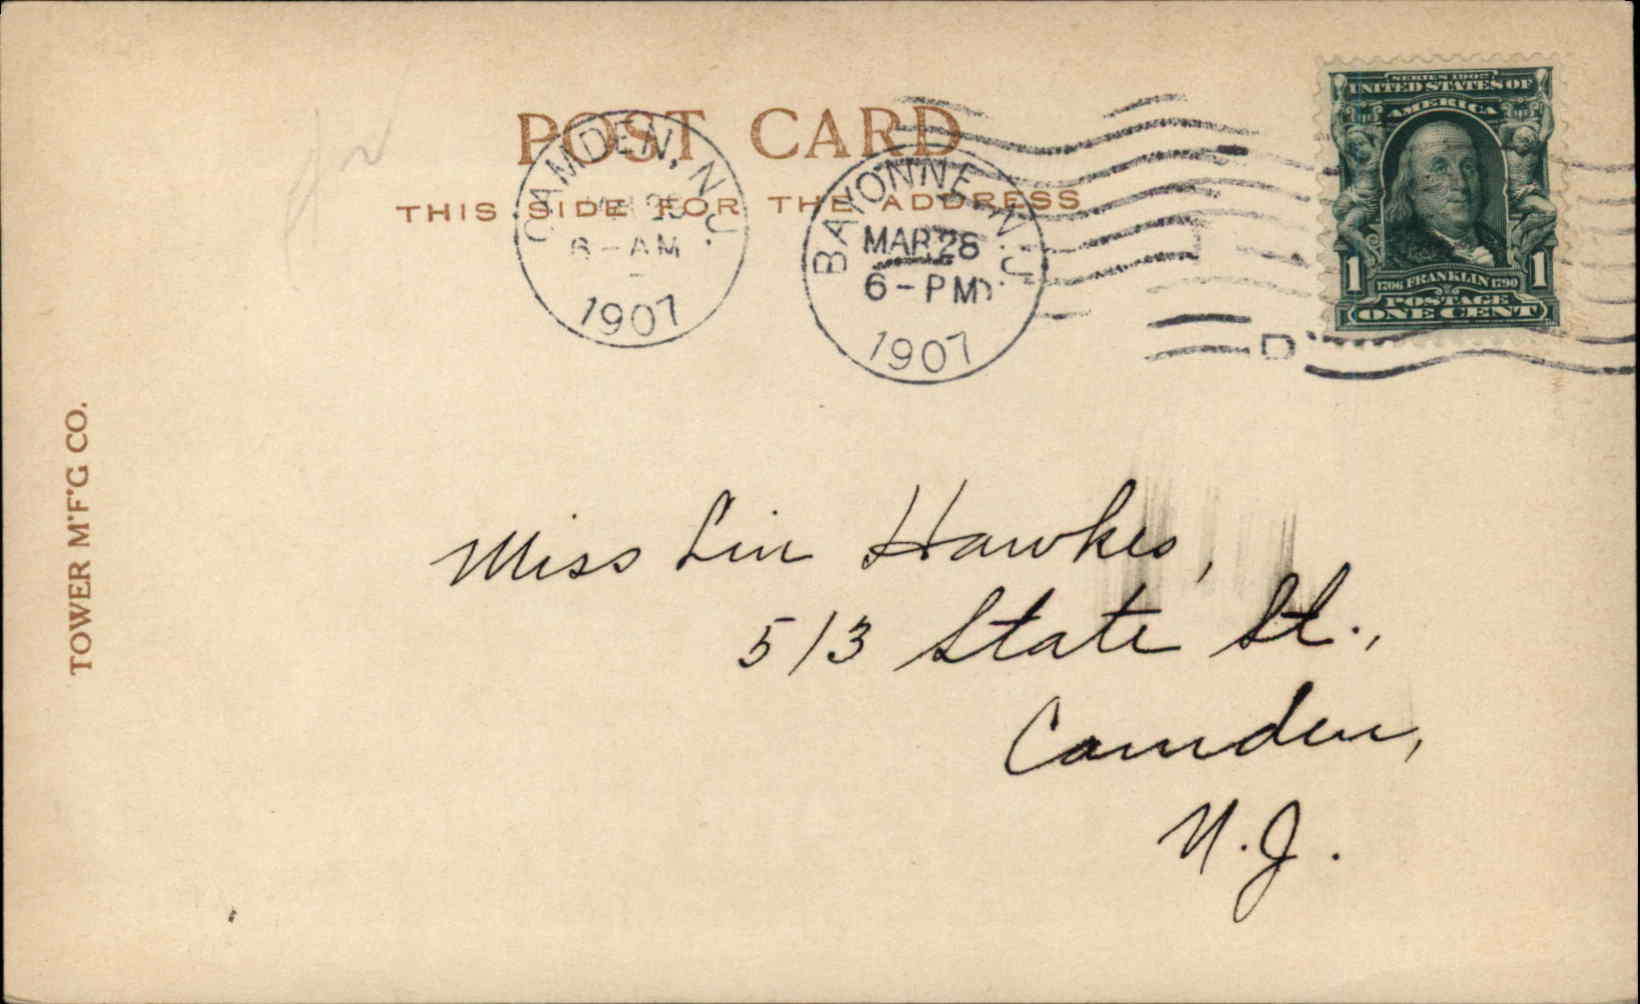 POST CARD
THIS SIDE FOR THE ADDRESS
CAMDEN, N.J.
6-AM
1907
BAYONNE N.J.
MAR 28
6-PM
1907
D
SERIES 1902
UNITED STATES OF
AMERICA
1706 FRANKLIN 1790
1 1
POSTAGE
ONE CENT
TOWER M'F'G CO.
Miss Lin Hawkes,
513 State St.,
Camden,
N.J.